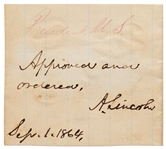 Approved and
ordered.
A. Lincoln
Sep. 1. 1864.